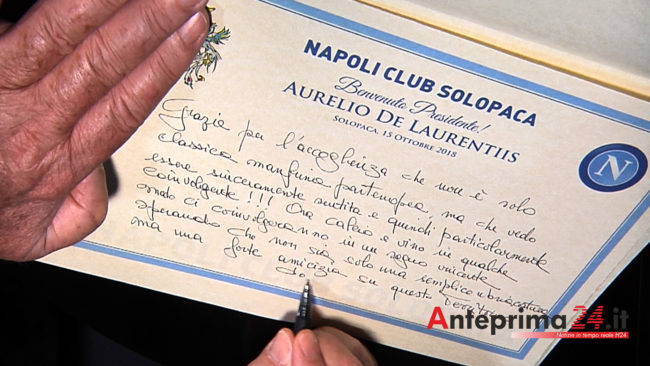 NAPOLI CLUB SOLOPACA
Benvenuto Presidente!
AURELIO DE LAURENTIIS
SOLOPACA, 15 OTTOBRE 2018
N
Grazie per l'accoglienza che non è solo
classica manfrina partenopea, ma che vedo
essere sinceramente sentita e quindi particolarmente
coinvolgente!!! Ora calcio e vino in qualche
modo ci coinvolgeranno in un sogno vincente
sperando che non sia solo una semplice ubriacatura
ma una forte amicizia su questo territorio
Anteprima24.it
Notizie in tempo reale H24